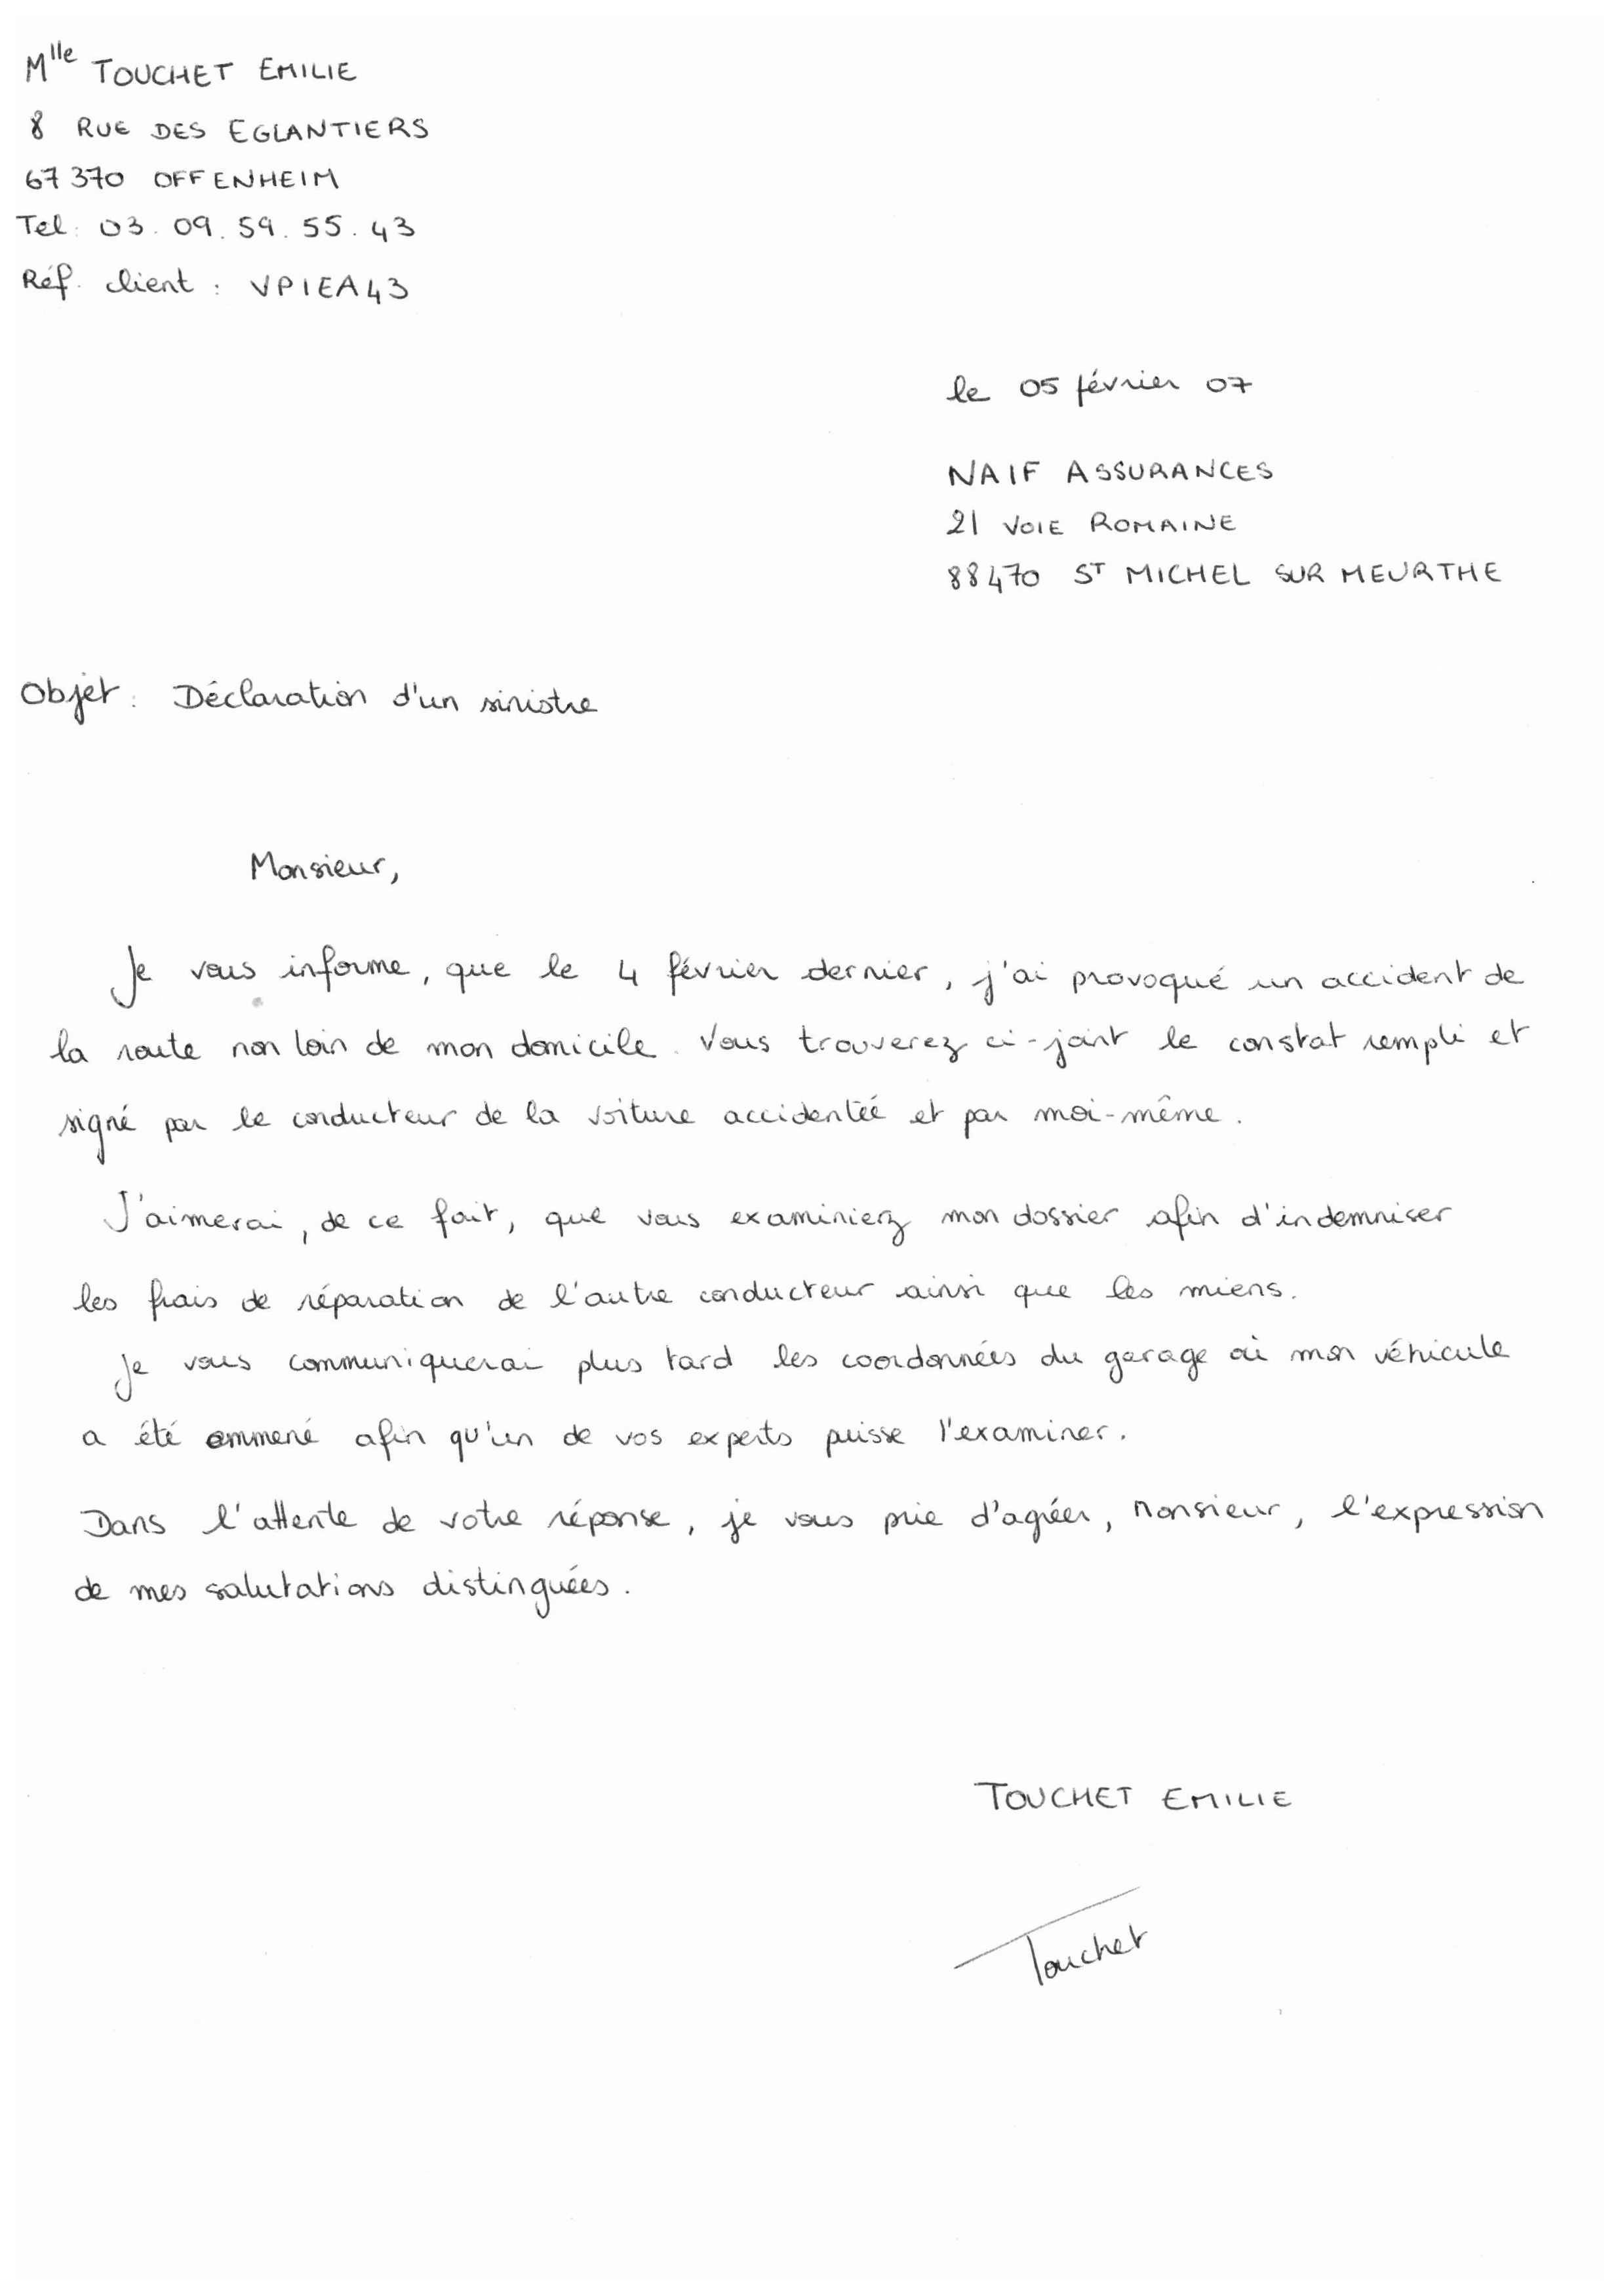 Mlle TOUCHET EMILIE
8 RUE DES EGLANTIERS
67370 OFFENHEIM
Tel: 03.09.59.55.43
Réf. client : VPIEA43
le 05 février 07
NAIF ASSURANCES
21 VOIE ROMAINE
88470 ST MICHEL SUR MEURTHE
Objet : Déclaration d'un sinistre
Monsieur,
Je vous informe, que le 4 février dernier, j'ai provoqué un accident de
la route non loin de mon domicile. Vous trouverez ci-joint le constat rempli et
signé par le conducteur de la voiture accidentéé et par moi-même.
J'aimerai, de ce fait, que vous examiniez mon dossier afin d'indemniser
les frais de réparation de l'autre conducteur ainsi que les miens.
Je vous communiquerai plus tard les coordonnées du garage où mon véhicule
a été emmené afin qu'un de vos experts puisse l'examiner.
Dans l'attente de votre réponse, je vous prie d'agréer, Monsieur, l'expression
de mes salutations distinguées.
TOUCHET EMILIE
Touchet